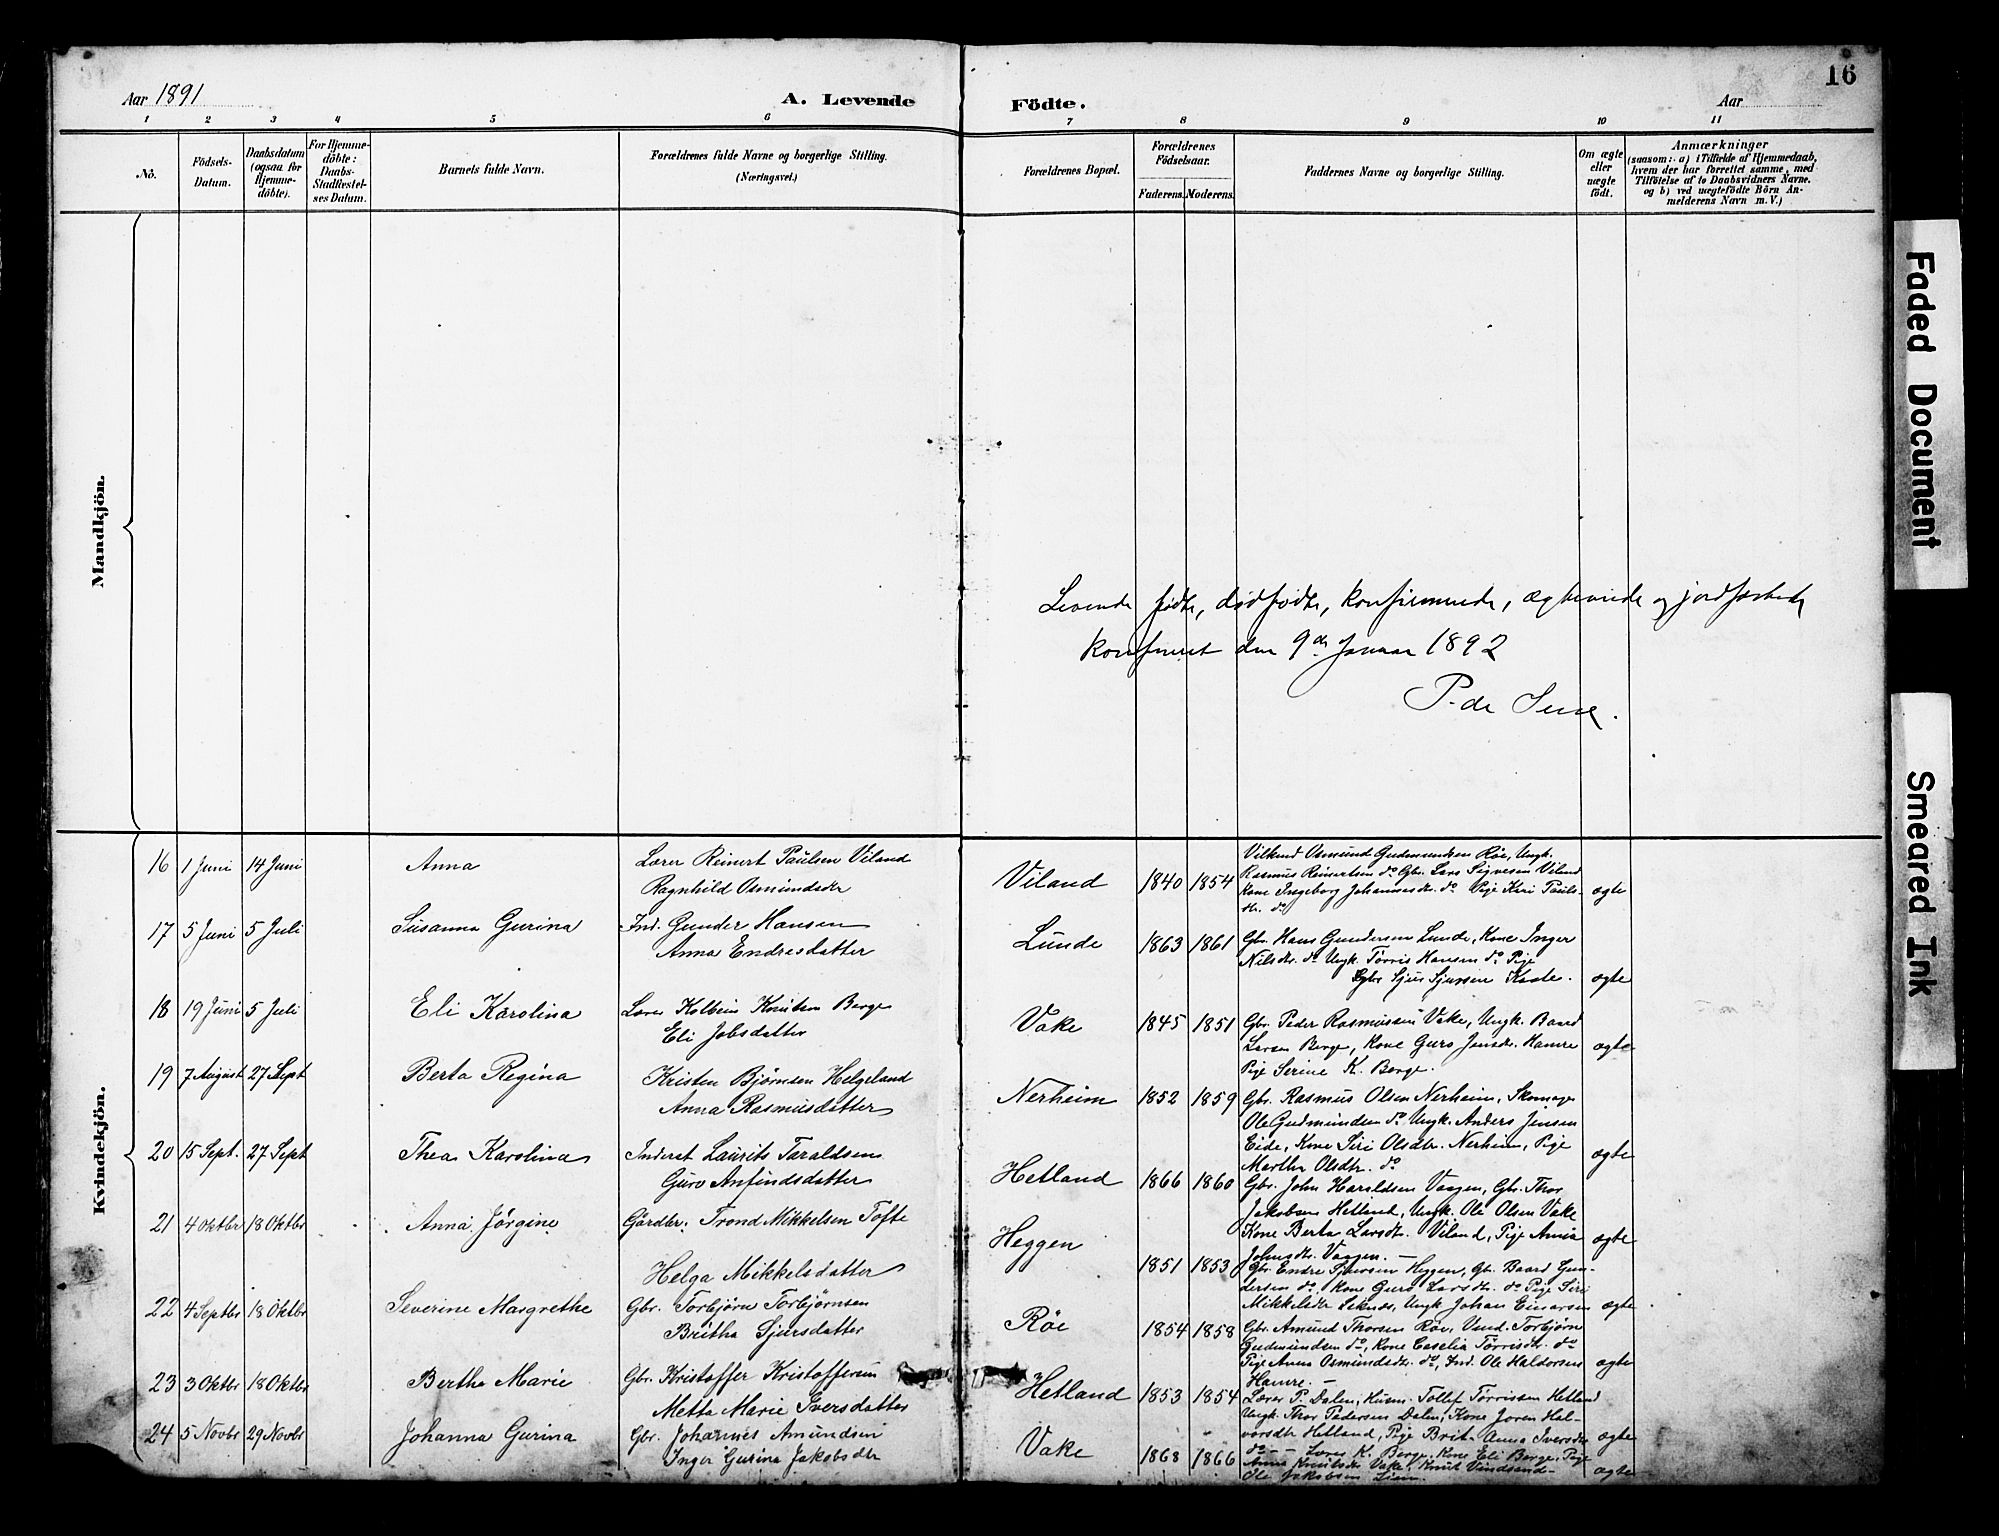 16
Aar 1891
A. Levende
Födte.
Aar
1 2 3 4 5 6 7 8 9 10 11
No.
Födsels-Datum.
Daabsdatum (ogsaa for Hjemme-döbte).
For Hjemme-döbte: Daabs-Stadfæstel-ses Datum.
Barnets fulde Navn.
Forældrenes fulde Navne og borgerlige Stilling. (Næringsvei.)
Forældrenes Bopæl.
Forældrenes Födselsaar.
Faderens. Moderens.
Faddernes Navne og borgerlige Stilling.
Om ægte eller uægte födt.
Anmærkninger
(saasom: a) i Tilfælde af Hjemmedaab,
hvem der har forrettet samme, med
Tilföielse af to Daabsvidners Navne.
og b) ved uægtefödte Börn An-
melderens Navn m.V.)
Mandkjön.
Levende fødte, dødfødte, konfirmerede, ægteviede og jordfæstede
konfereret den 9de Januar 1892
Kvindekjön.
16 1 Juni 14 Juni Anna Lærer Reinert Paulsen Viland
Ragnhild Osmundsdtr
Viland 1840 1854
Vilkend Osmund Gudmundsen Røe, Ungk.
Rasmus Reinertsen do Gbr. Lars Sigvesen Viland
Kone Ingeborg Johannesdtr. do Pige Kari Pauls-
dtr. do ægte
17 5 Juni 5 Juli Susanna Gurina Ind. Gunder Hansen
Anna Endresdatter
Lunde 1863 1861
Gbr. Hans Gundersen Lunde, Kone Inger
Nilsdtr. do Ungk. Tørris Hansen do Pige
Gbr Sjur Sjursen ægte
18 19 Juni 5 Juli Eli Karolina Lærer Kolbein Knutsen Berge
Eli Jobsdatter
Vake 1845 1851
Gbr. Peder Rasmussen Vake, Ungk. Baard
Larsen Berge, Kone Guro Jonsdtr. Hamre
Pige Serine K. Berge. ægte
19 7 August 27 Sept Berta Regina Kristen Bjørnsen Helgeland
Anna Rasmusdatter
Nerheim 1852 1859
Gbr. Rasmus Olsen Nerheim, Skomager
Ole Gudmundsen do Ungk. Anders Jensen
Eide, Kone Siri Olsdtr. Nerheim, Pige
Martha Olsdtr. do ægte
20 15 Sept. 27 Sept Thea Karolina Inderst Laurits Taraldsen
Guro Anfindsdatter
Hetland 1866 1860
Gbr. John Haraldsen Vaagen, Gbr. Thor
Jakobsen Hetland, Ungk. Ole Olsen Vake
Kone Berta Larsdtr. Viland, Pige Anna
Johnsdtr. Vaagen. ægte
21 4 Oktbr 18 Oktbr Anna Jørgine Gårdbr. Trond Mikkelsen Tofte
Helga Mikkelsdatter
Heggen 1851 1853
Gbr. Endre Sjursen Heggen, Gbr. Baard Gun-
dersen do, Kone Guro Larsdtr. do Pige Siri
Mikkelsdtr Ungk Johan Einarsen ægte
22 4 Septbr 18 Oktbr Severine Margrethe Gbr. Torbjørn Torbjørnsen
Britha Sjursdatter
Røe 1854 1858
Gbr. Amund Thorsen Røe, Torbjørn
Gudmundsen do, Kone Cecelia Tørrisdtr. do
Pige Anna Osmundsdtr. do, Ind. Ole Haldorsen
Hamre. ægte
23 3 Oktbr 18 Oktbr Bertha Marie Gbr. Kristoffer Kristoffersen
Metta Marie Iversdatter
Hetland 1853 1854
Lærer P. Dalen, Husm. Tollef Tørrissen Hetland
Ungk. Thor Pedersen Dalen, Kone Joren Hal-
vorsdtr Hetland, Pige Brit-Anna Iversdtr
do ægte
24 5 Novbr 29 Novbr Johanna Gurina Gbr. Johannes Amundsen
Inger Gurina Jakobsdtr
Vake 1868 1866
Lærer K. Berge, Kone Eli Berge, Pige
Anna Knutsdtr Vake, Knut
Ole Jakobsen Lien. ægte
Faded Document
Smeared Ink